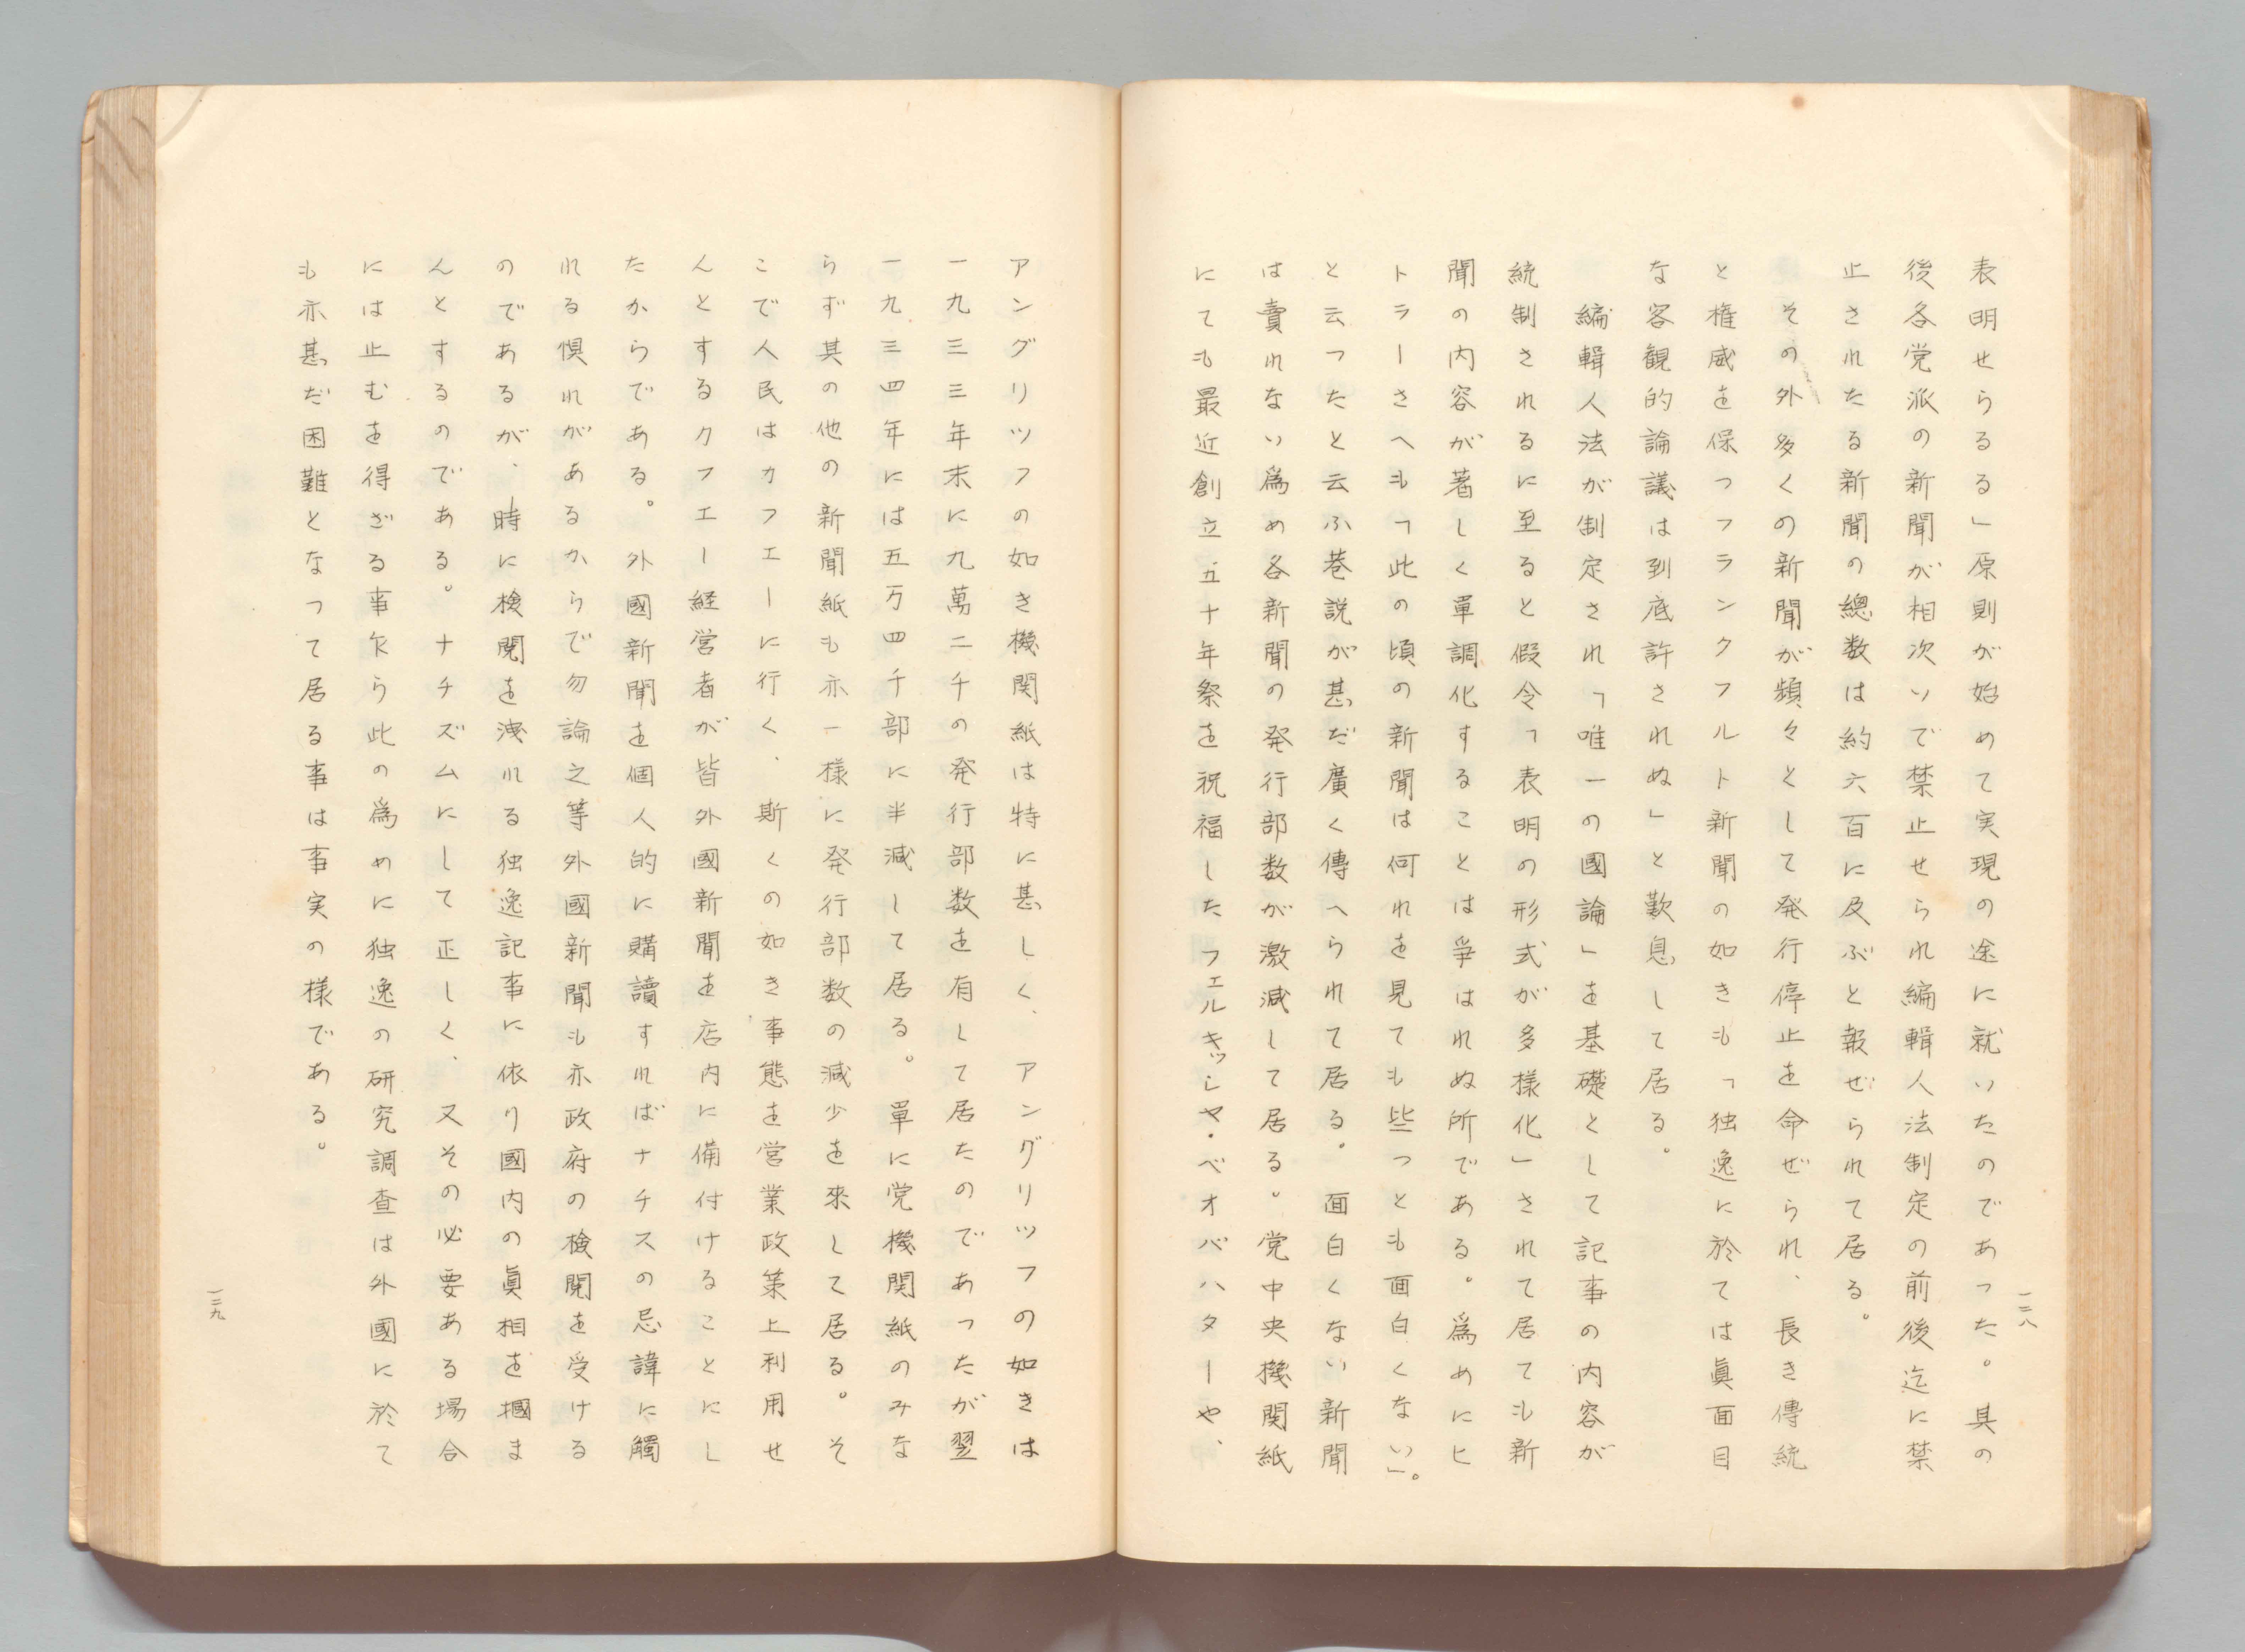 表明せらるる」原則が始めて実現の途に就いたのであつた。其の
後各党派の新聞が相次いで禁止せられ編輯人法制定の前後迄に禁
止されたる新聞の總数は約六百に及ぶと報ぜられて居る。
その外多くの新聞が頻々として発行停止を命ぜられ、長き傳統
と権威を保つフランクフルト新聞の如きも「独逸に於ては眞面目
な客観的論議は到底許されぬ」と歎息して居る。
編輯人法が制定され「唯一の國論」を基礎として記事の内容が
統制されるに至ると假令「表明の形式が多様化」されて居ても新
聞の内容が著しく單調化することは爭はれぬ所である。爲めにヒ
トラーさへも「此の頃の新聞は何れを見ても些つとも面白くない」。
と云つたと云ふ巷説が甚だ廣く傳へられて居る。面白くない新聞
は賣れない爲め各新聞の発行部数が激減して居る。党中央機関紙
にても最近創立五十年祭を祝福したフェルキッシヤ・ベオバハターや、
一二八
アングリツフの如き機関紙は特に甚しく、アングリツフの如きは
一九三三年末に九萬二千の発行部数を有して居たのであつたが翌
一九三四年には五万四千部に半減して居る。單に党機関紙のみな
らず其の他の新聞紙も亦一様に発行部数の減少を來して居る。そ
こで人民はカフエーに行く、斯くの如き事態を営業政策上利用せ
んとするクフエー経営者が皆外國新聞を店内に備付けることにし
たからである。外國新聞を個人的に購讀すればナチスの忌諱に觸
れる惧れがあるからで勿論之等外國新聞も亦政府の檢閲を受ける
のであるが、時に檢閲を洩れる独逸記事に依り國内の眞相を摑ま
んとするのである。ナチズムにして正しく、又その必要ある場合
には止むを得ざる事乍ら此の爲めに独逸の研究調査は外國に於て
も亦甚だ困難となつて居る事は事実の様である。
一二九